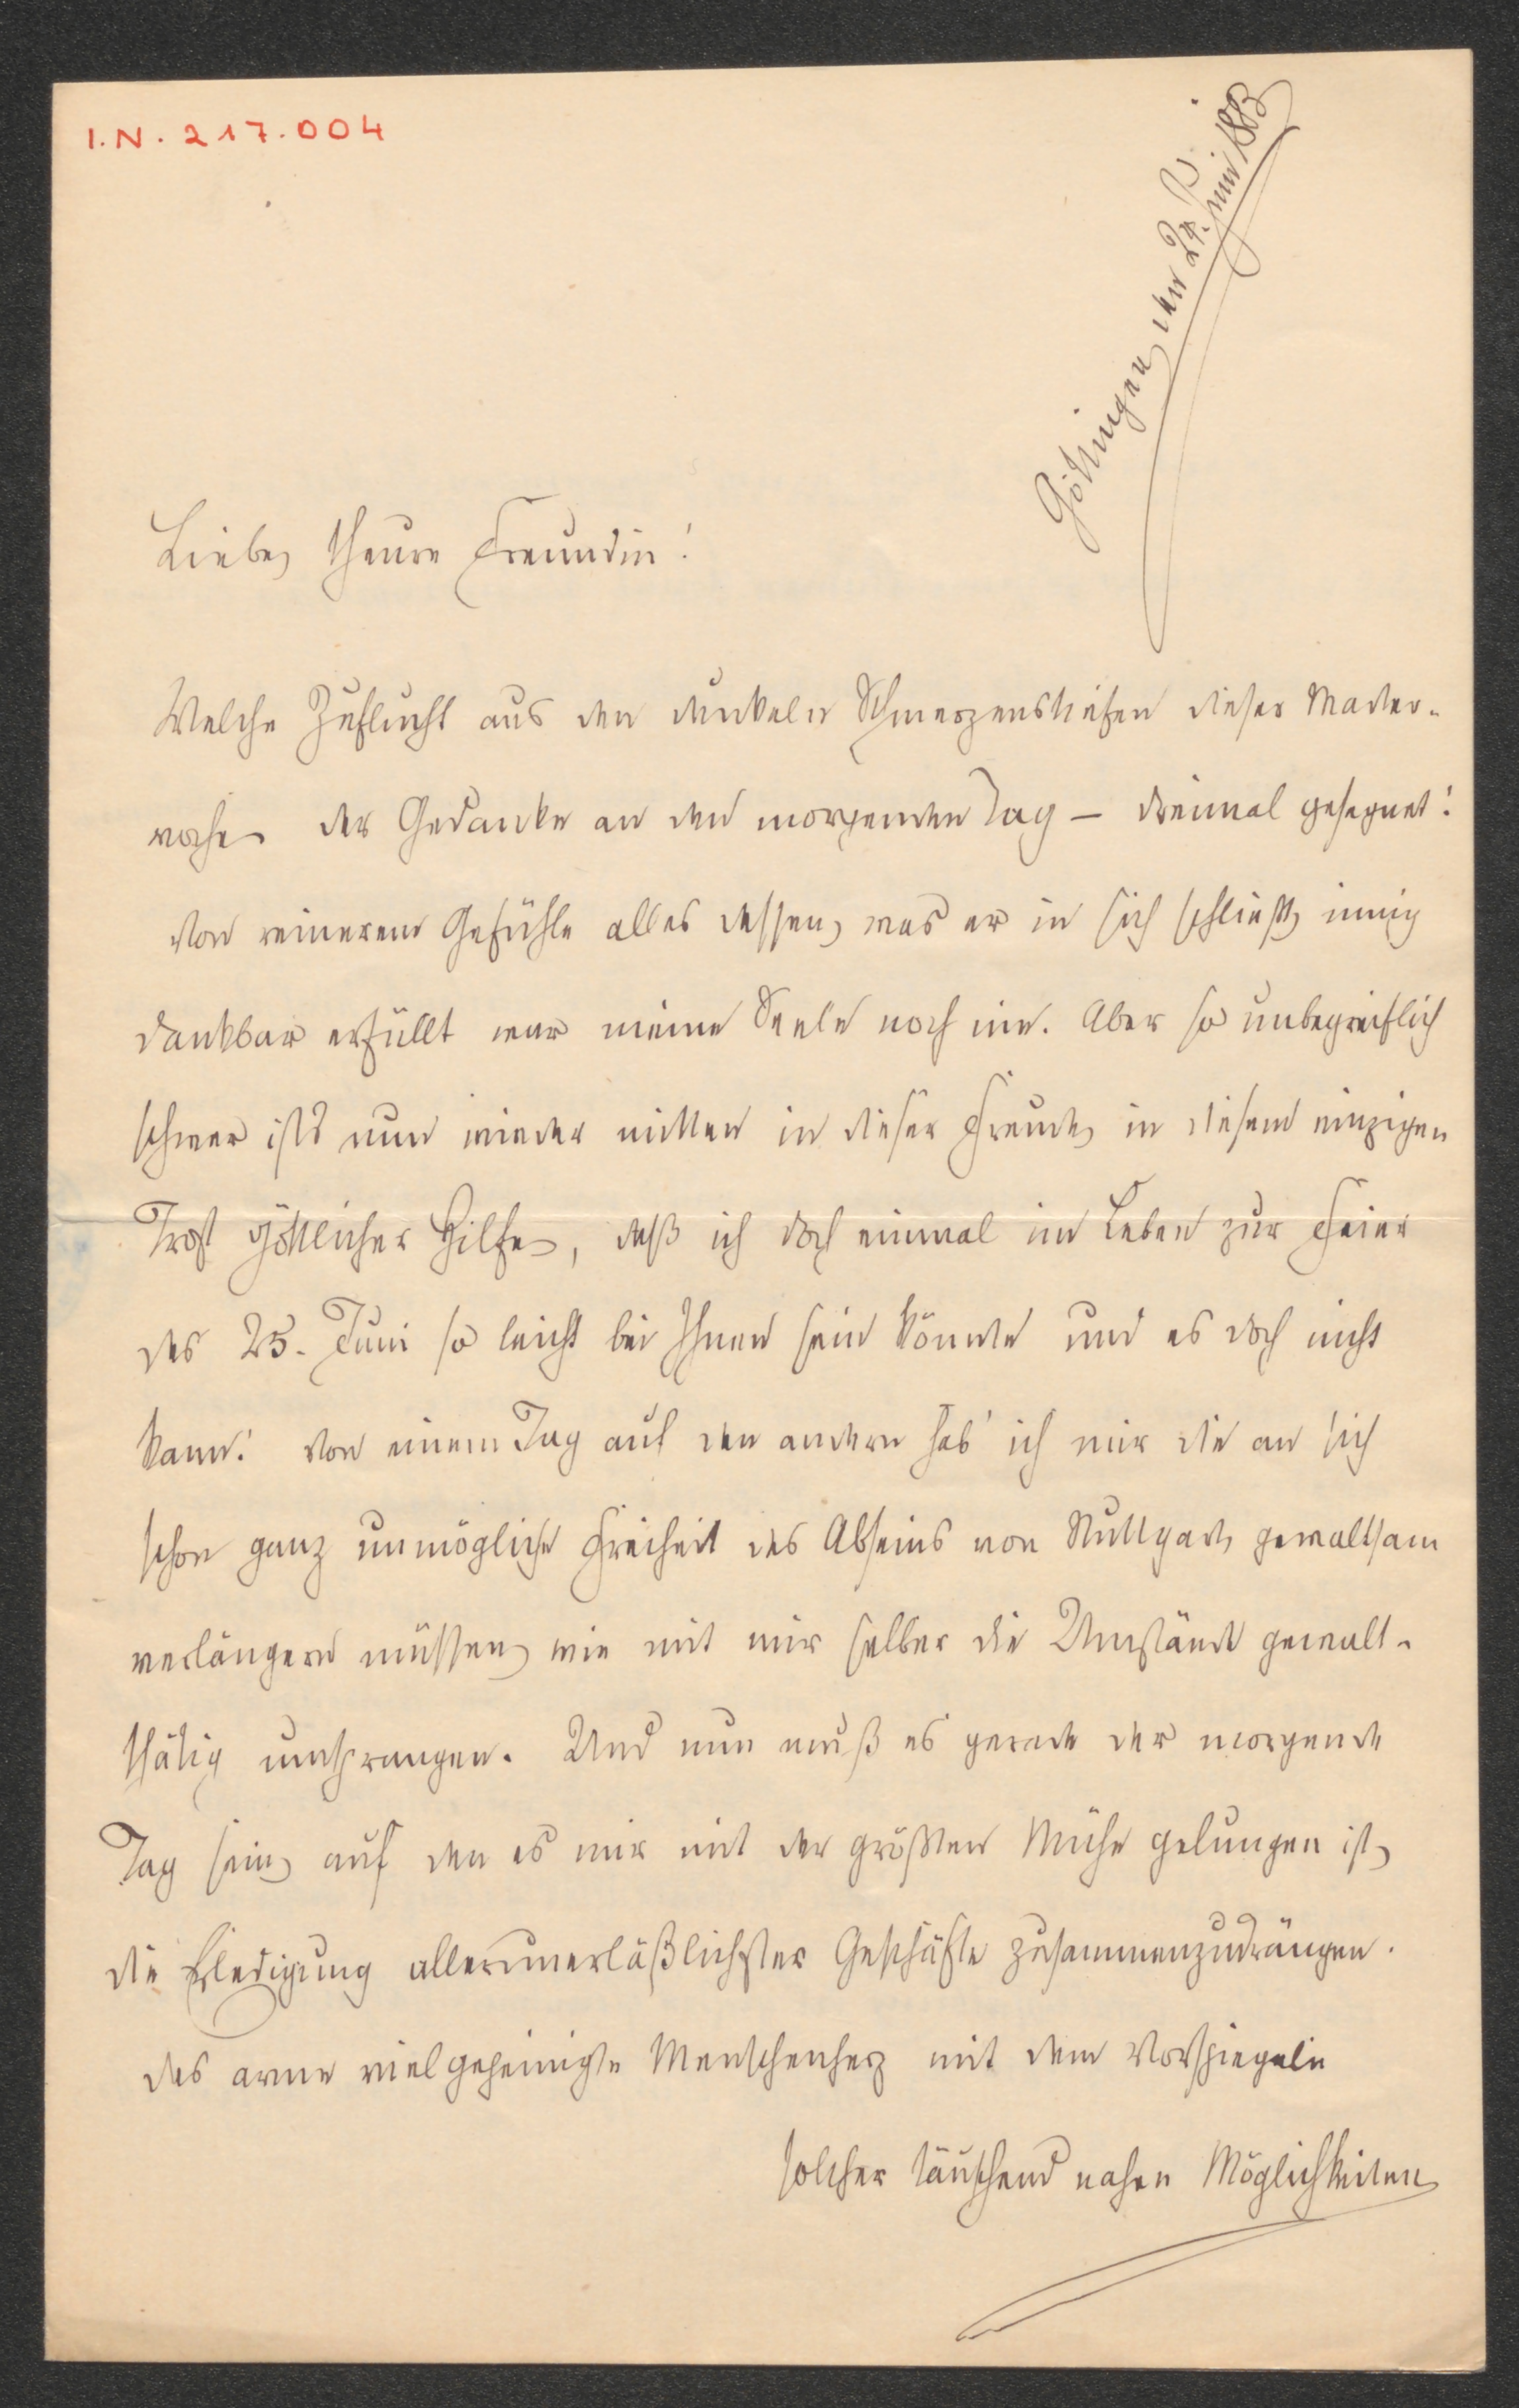 I.N. 217.004
Göttingen, den 24. Juni 1883
Liebe, theure Freundin!
Welche Zuflucht aus den dunkeln Schmerzenstiefen dieser Marter-
woche der Gedanke an den morgenden Tag – dreimal gesegnet!
Von reinerem Gefühle alles dessen, was er in sich schließt, innig
dankbar erfüllt war meine Seele noch nie. Aber so unbegreiflich
schwer ists nun wieder mitten in dieser Freude, in diesem einzigen
Trost göttlicher Hilfe, daß ich doch einmal im Leben zur Feier
des 25. Juni so leicht bei Ihnen sein könnte und es doch nicht
kann! Von einem Tag auf den andern hab' ich mir die an sich
schon ganz unmögliche Freiheit des Abseins von Stuttgart, gewaltsam
verlängern müssen, wie mit mir selber die Umstände gewalt-
thätig umsprangen. Und nun muß es gerade der morgende
Tag sein, auf den es mir mit der größten Mühe gelungen ist,
die Erledigung allerunerläßlichster Geschäfte zusammenzudrängen.
Das arme vielgepeinigte Menschenherz mit dem Vorspiegeln
solcher täuschend nahen Möglichkeiten